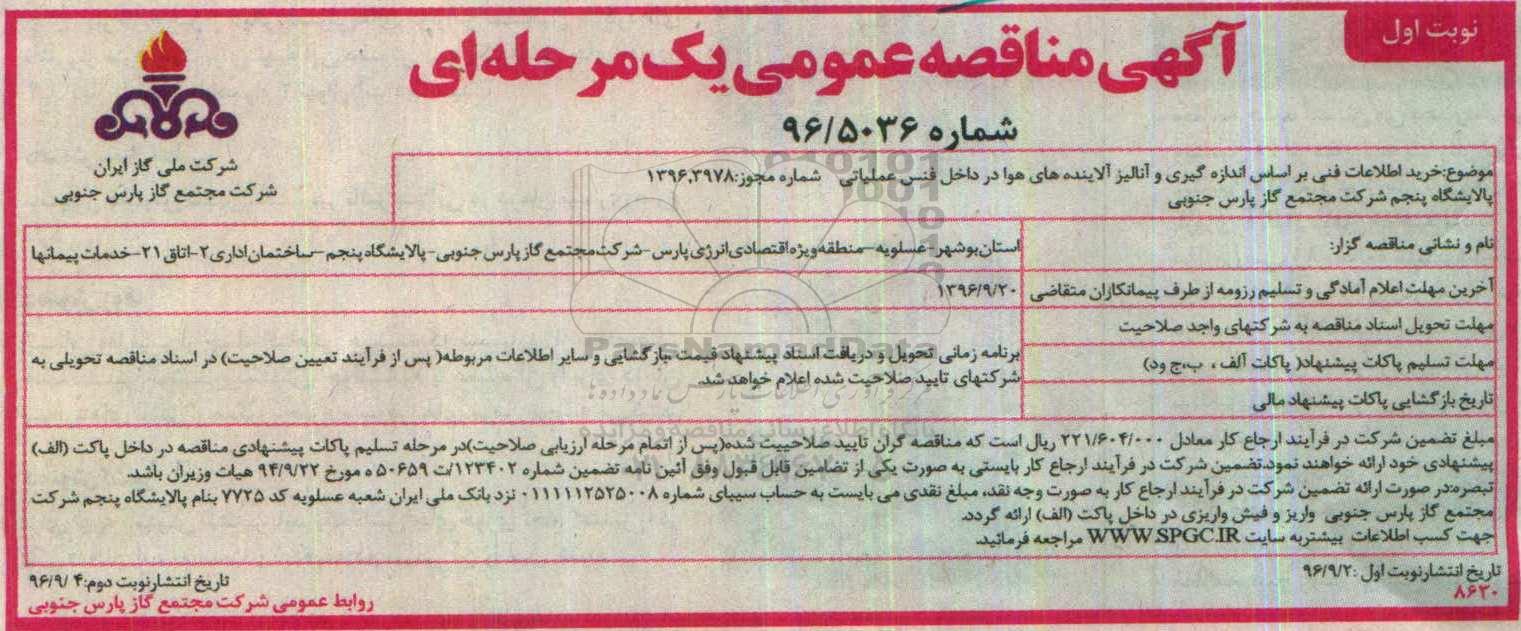 نوبت اول
آگهی مناقصه عمومی یک مرحله‌ای
شماره ۹۶/۵۰۳۶
شرکت ملی گاز ایران
شرکت مجتمع گاز پارس جنوبی
موضوع:خرید اطلاعات فنی بر اساس اندازه گیری و آنالیز آلاینده های هوا در داخل فنس عملیاتی شماره مجوز:۱۳۹۶.۳۹۷۸
پالایشگاه پنجم شرکت مجتمع گاز پارس جنوبی
نام و نشانی مناقصه گزار:
استان بوشهر-عسلویه-منطقه ویژه اقتصادی انرژی پارس-شرکت مجتمع گاز پارس جنوبی-پالایشگاه پنجم-ساختمان اداری ۲-اتاق ۲۱-خدمات پیمانها
آخرین مهلت اعلام آمادگی و تسلیم رزومه از طرف پیمانکاران متقاضی
۱۳۹۶/۹/۲۰
مهلت تحویل اسناد مناقصه به شرکتهای واجد صلاحیت
مهلت تسلیم پاکات پیشنهاد( پاکات آلف ، ب،ج ود)
تاریخ بازگشایی پاکات پیشنهاد مالی
برنامه زمانی تحویل و دریافت اسناد پیشنهاد قیمت ،بازگشایی و سایر اطلاعات مربوطه( پس از فرآیند تعیین صلاحیت) در اسناد مناقصه تحویلی به
شرکتهای تایید صلاحیت شده اعلام خواهد شد.
مبلغ تضمین شرکت در فرآیند ارجاع کار معادل ۲۲۱/۶۰۴/۰۰۰ ریال است که مناقصه گران تایید صلاحییت شده(پس از اتمام مرحله ارزیابی صلاحیت)در مرحله تسلیم پاکات پیشنهادی مناقصه در داخل پاکت (الف)
پیشنهادی خود ارائه خواهند نمود.تضمین شرکت در فرآیند ارجاع کار بایستی به صورت یکی از تضامین قابل قبول وفق آئین نامه تضمین شماره ۱۲۳۴۰۲/ت ۵۰۶۵۹ ه مورخ ۹۴/۹/۲۲ هیات وزیران باشد.
تبصره:در صورت ارائه تضمین شرکت در فرآیند ارجاع کار به صورت وجه نقد، مبلغ نقدی می بایست به حساب سیبای شماره ۰۱۱۱۱۱۲۵۲۵۰۰۸ نزد بانک ملی ایران شعبه عسلویه کد ۷۷۲۵ بنام پالایشگاه پنجم شرکت
مجتمع گاز پارس جنوبی واریز و فیش واریزی در داخل پاکت (الف) ارائه گردد.
جهت کسب اطلاعات بیشتر به سایت WWW.SPGC.IR مراجعه فرمائید.
تاریخ انتشارنوبت اول :۹۶/۹/۲
تاریخ انتشارنوبت دوم:۹۶/۹/۴
۸۶۳۰
روابط عمومی شرکت مجتمع گاز پارس جنوبی
ParsNamadData